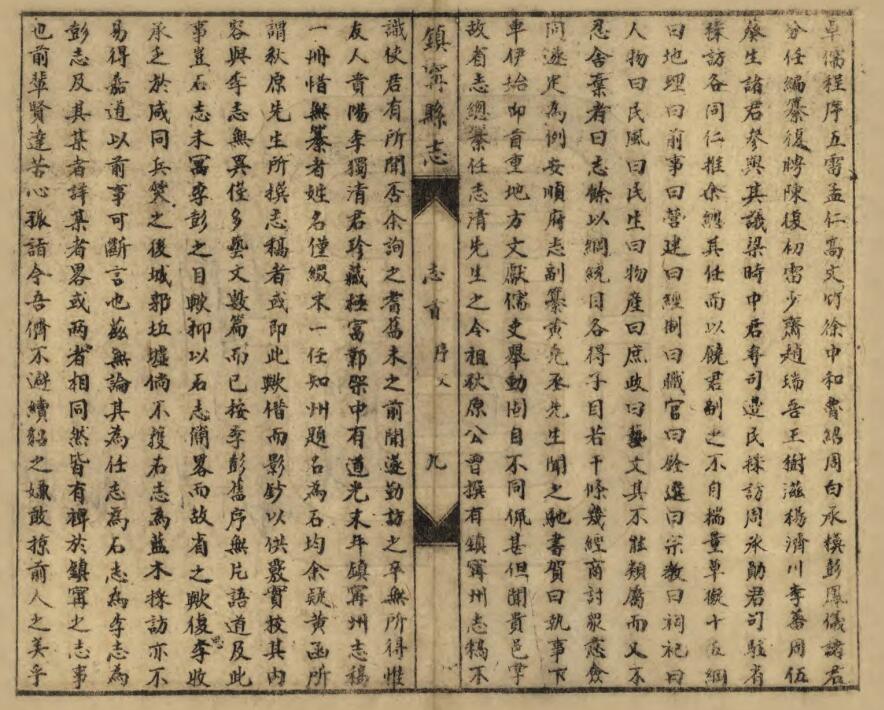 卓儒程序五雷孟仁高文竹徐中和曹紹周白承模彭鳳儀諸君
分任編纂復聘陳復初雷少齋趙瑞吾王樹滋楊濟川李蕃周伍
燊生諸君參與其議梁時中君専司邊民採訪周承勛君司駐省
採訪各同仁推余總其任而以饒君副之不自揣量草擬十五綱
曰地理曰前事曰營建曰經制曰職官曰銓選曰宗教曰祠祀曰
人物曰民風曰民生曰物產曰庶政曰藝文其不能類屬而又不
忍舍棄者曰志餘以綱統目各得子目若干條幾經商討衆意僉
同遂定為例安順府志副纂黃堯丞先生聞之馳書賀曰執事下
車伊始即首重地方文獻儒吏舉動固自不同佩甚但聞貴邑掌
故省志總纂任志清先生之令祖秋原公曾撰有鎮寧州志稿不
鎮寧縣志
志首 序文
九
識使君有所聞否余詢之耆舊未之前聞遂勤訪之卒無所得惟
友人貴陽李獨清君珍藏極富鄴架中有道光末年鎮寧州志稿
一冊惜無纂者姓名僅綴末一任知州題名為石均余疑黃函所
謂秋原先生所撰志稿者或即此歟借而影鈔以供覈實按其內
容與李志無異僅多藝文數篇而已按李彭舊序無片語道及此
事豈石志未寓李彭之目歟抑以石志簡畧而故省之歟復李收
承乏於咸同兵燹之後城郭坵墟倘不獲石志為藍本採訪亦不
易得嘉道以前事可斷言也茲無論其為任志為石志為李志為
彭志及其某者詳某者畧或兩者相同然皆有裨於鎮寧之志事
也前輩賢達苦心孤詣今吾儕不避續貂之嫌敢掠前人之美乎